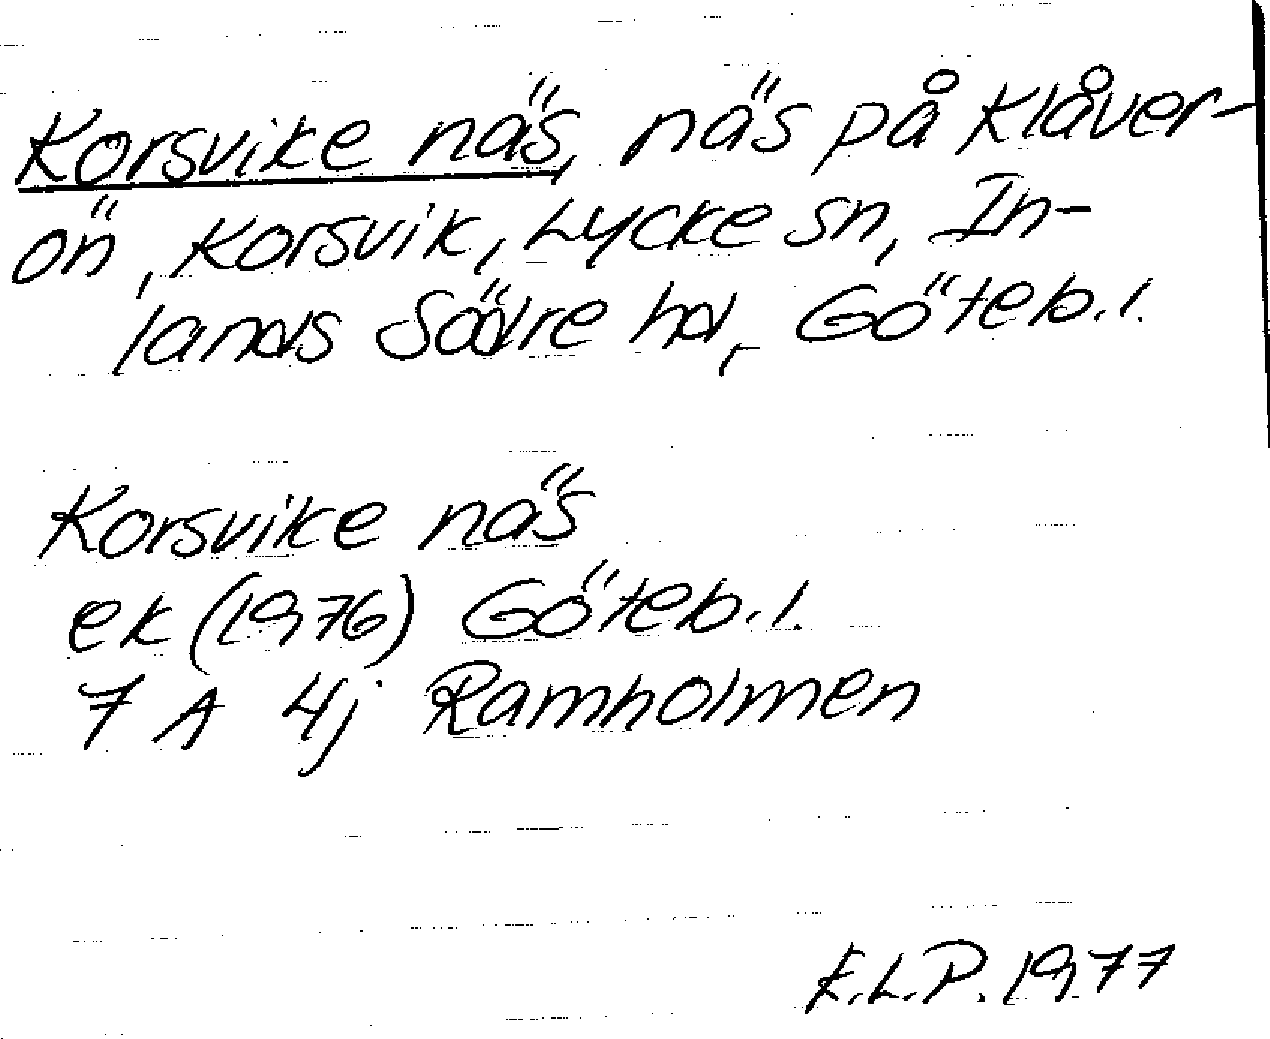 Korsvike näs, näs på Klåver-
ön, Korsvik, Lycke sn, In-
lands Södre hd, Göteb.l.
Korsvike näs
ek (1976) Göteb.l.
7 A 4j Ramholmen
K.L.P. 1977